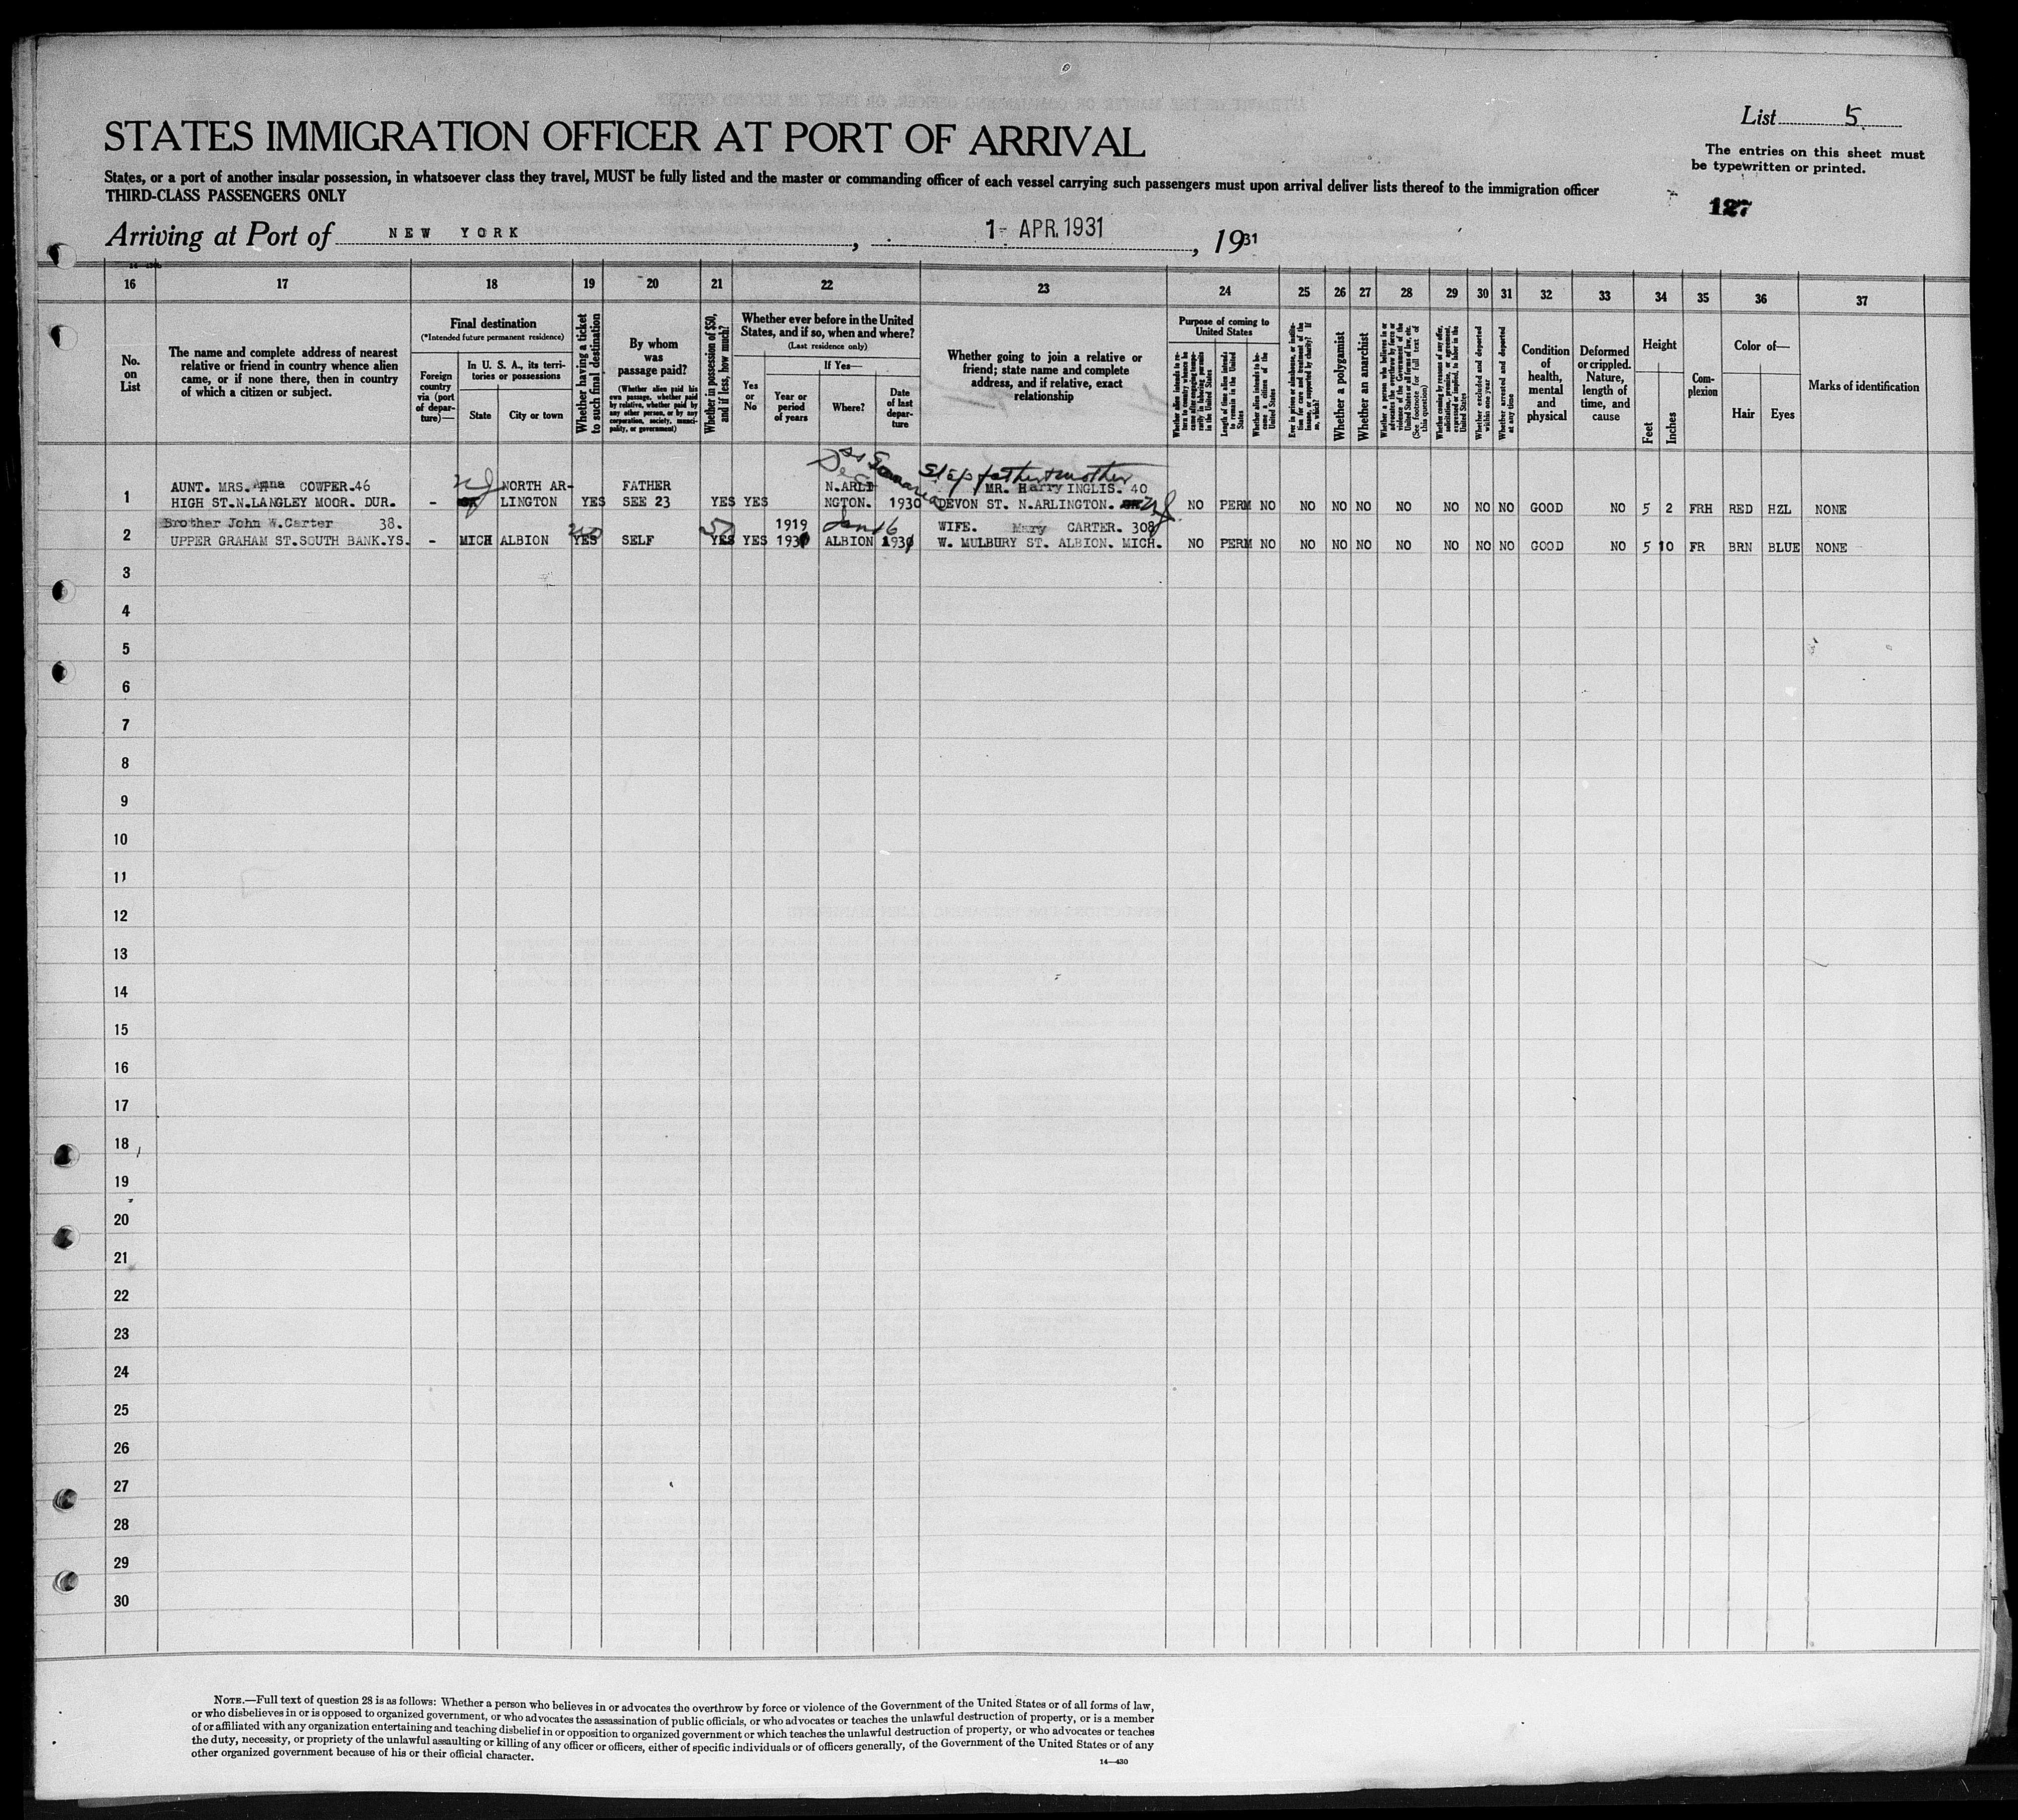 STATES IMMIGRATION OFFICER AT PORT OF ARRIVAL
List 5
The entries on this sheet must
be typewritten or printed.
States, or a port of another insular possession, in whatsoever class they travel, MUST be fully listed and the master or commanding officer of each vessel carrying such passengers must upon arrival deliver lists thereof to the immigration officer
THIRD-CLASS PASSENGERS ONLY
127
Arriving at Port of NEW YORK, 1- APR. 1931, 1931
16 17 18 19 20 21 22 23 24 25 26 27 28 29 30 31 32 33 34 35 36 37
No.
on
List
The name and complete address of nearest
relative or friend in country whence alien
came, or if none there, then in country
of which a citizen or subject.
Final destination
(*Intended future permanent residence)
Foreign
country
via (port
of depar-
ture)—
In U. S. A., its terri-
tories or possessions
State
City or town
Whether having a ticket
to such final destination
By whom
was
passage paid?
(Whether alien paid his
own passage, whether paid
by relative, whether paid by
any other person, or by any
corporation, society, munici-
pality, or government)
Whether in possession of $50,
and if less, how much?
Whether ever before in the United
States, and if so, when and where?
(Last residence only)
Yes
or
No
If Yes—
Year or
period
of years
Where?
Date
of last
depar-
ture
Whether going to join a relative or
friend; state name and complete
address, and if relative, exact
relationship
Purpose of coming to
United States
Whether alien intends to re-
turn to country whence he
came after engaging tempo-
rarily in laboring pursuits
in the United States
Length of time alien intends
to remain in the United
States
Whether alien intends to be-
come a citizen of the
United States
Ever in prison or almshouse, or institu-
tion for care and treatment of the
insane, or supported by charity? If
so, which?
Whether a polygamist
Whether an anarchist
Whether a person who believes in or
advocates the overthrow by force or
violence of the Government of the
United States or all forms of law, etc.
(See footnote for full text of
this question)
Whether coming by reasons of any offer,
solicitation, promise, or agreement,
expressed or implied, to labor in the
United States
Whether excluded and deported
within one year
Whether arrested and deported
at any time
Condition
of
health,
mental
and
physical
Deformed
or crippled.
Nature,
length of
time, and
cause
Height
Feet
Inches
Com-
plexion
Color of—
Hair
Eyes
Marks of identification
Step father+mother
AUNT. MRS. Anna COWPER.46 NJ NORTH AR- FATHER N.ARLI- MR. Harry INGLIS. 40
1 HIGH ST.N.LANGLEY MOOR. DUR. - LINGTON YES SEE 23 YES YES NGTON. 1930 DEVON ST. N.ARLINGTON. NJ NO PERM NO NO NO NO NO NO NO NO GOOD NO 5 2 FRH RED HZL NONE
Brother John W.Carter 38. no 50 1919 Jan 16 WIFE. Mary CARTER. 308
2 UPPER GRAHAM ST.SOUTH BANK.YS. - MICH ALBION YES SELF YES YES 1931 ALBION 1931 W. MULBURY ST. ALBION. MICH. NO PERM NO NO NO NO NO NO NO NO GOOD NO 5 10 FR BRN BLUE NONE
3
4
5
6
7
8
9
10
11
12
13
14
15
16
17
18
19
20
21
22
23
24
25
26
27
28
29
30
NOTE.—Full text of question 28 is as follows: Whether a person who believes in or advocates the overthrow by force or violence of the Government of the United States or of all forms of law,
or who disbelieves in or is opposed to organized government, or who advocates the assassination of public officials, or who advocates or teaches the unlawful destruction of property, or is a member
of or affiliated with any organization entertaining and teaching disbelief in or opposition to organized government or which teaches the unlawful destruction of property, or who advocates or teaches
the duty, necessity, or propriety of the unlawful assaulting or killing of any officer or officers, either of specific individuals or of officers generally, of the Government of the United States or of any
other organized government because of his or their official character.
14—430